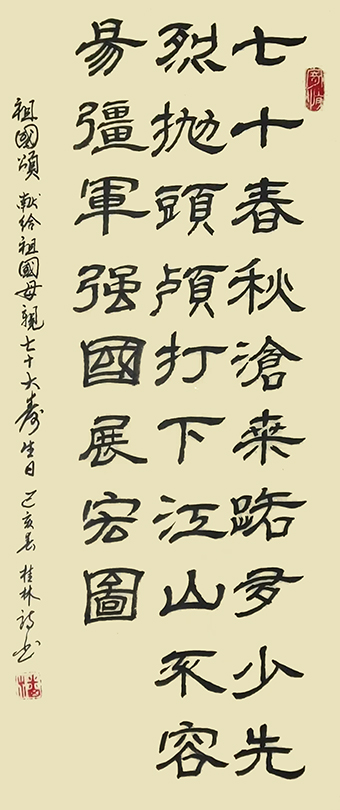 七十春秋滄桒路多少先
烈抛頭顱打下江山不容
易彊軍强國展宏圖
祖國頌 献給祖國母親七十大壽生日 己亥春 桂林詩书